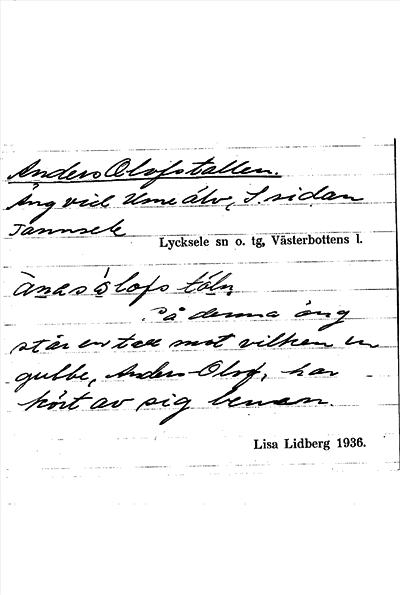 Anders Olofstallen.
Äng vid Ume älv, S. sidan
Tannsele
Lycksele sn o. tg, Västerbottens l.
ànas ólofs tóln
På denna äng
står en tall mot vilken en
gubbe, Anders-Olof, har
kört av sig benen.
Lisa Lidberg 1936.